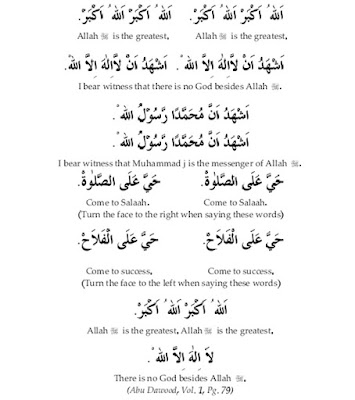 اَللهُ اَكْبَرُ اَللهُ اَكْبَرْ. اَللهُ اَكْبَرُ اَللهُ اَكْبَرْ.
Allah ﷻ is the greatest, Allah ﷻ is the greatest,
اَشْهَدُ اَنْ لَّااِلٰهَ اِلَّا اللهْ. اَشْهَدُ اَنْ لَّااِلٰهَ اِلَّا اللهْ.
I bear witness that there is no God besides Allah ﷻ.
اَشْهَدُ اَنَّ مُحَمَّدًا رَّسُوْلُ اللهْ.
اَشْهَدُ اَنَّ مُحَمَّدًا رَّسُوْلُ اللهْ.
I bear witness that Muhammad j is the messenger of Allah ﷻ.
حَيَّ عَلَى الصَّلٰوةْ. حَيَّ عَلَى الصَّلٰوةْ.
Come to Salaah. Come to Salaah.
(Turn the face to the right when saying these words)
حَيَّ عَلَى الْفَلَاحْ. حَيَّ عَلَى الْفَلَاحْ.
Come to success, Come to success,
(Turn the face to the left when saying these words)
اَللهُ اَكْبَرُ اَللهُ اَكْبَرْ.
Allah ﷻ is the greatest, Allah ﷻ is the greatest,
لَا اِلٰهَ اِلَّا اللهْ.
There is no God besides Allah ﷻ,
(Abu Dawood, Vol. 1, Pg. 79)